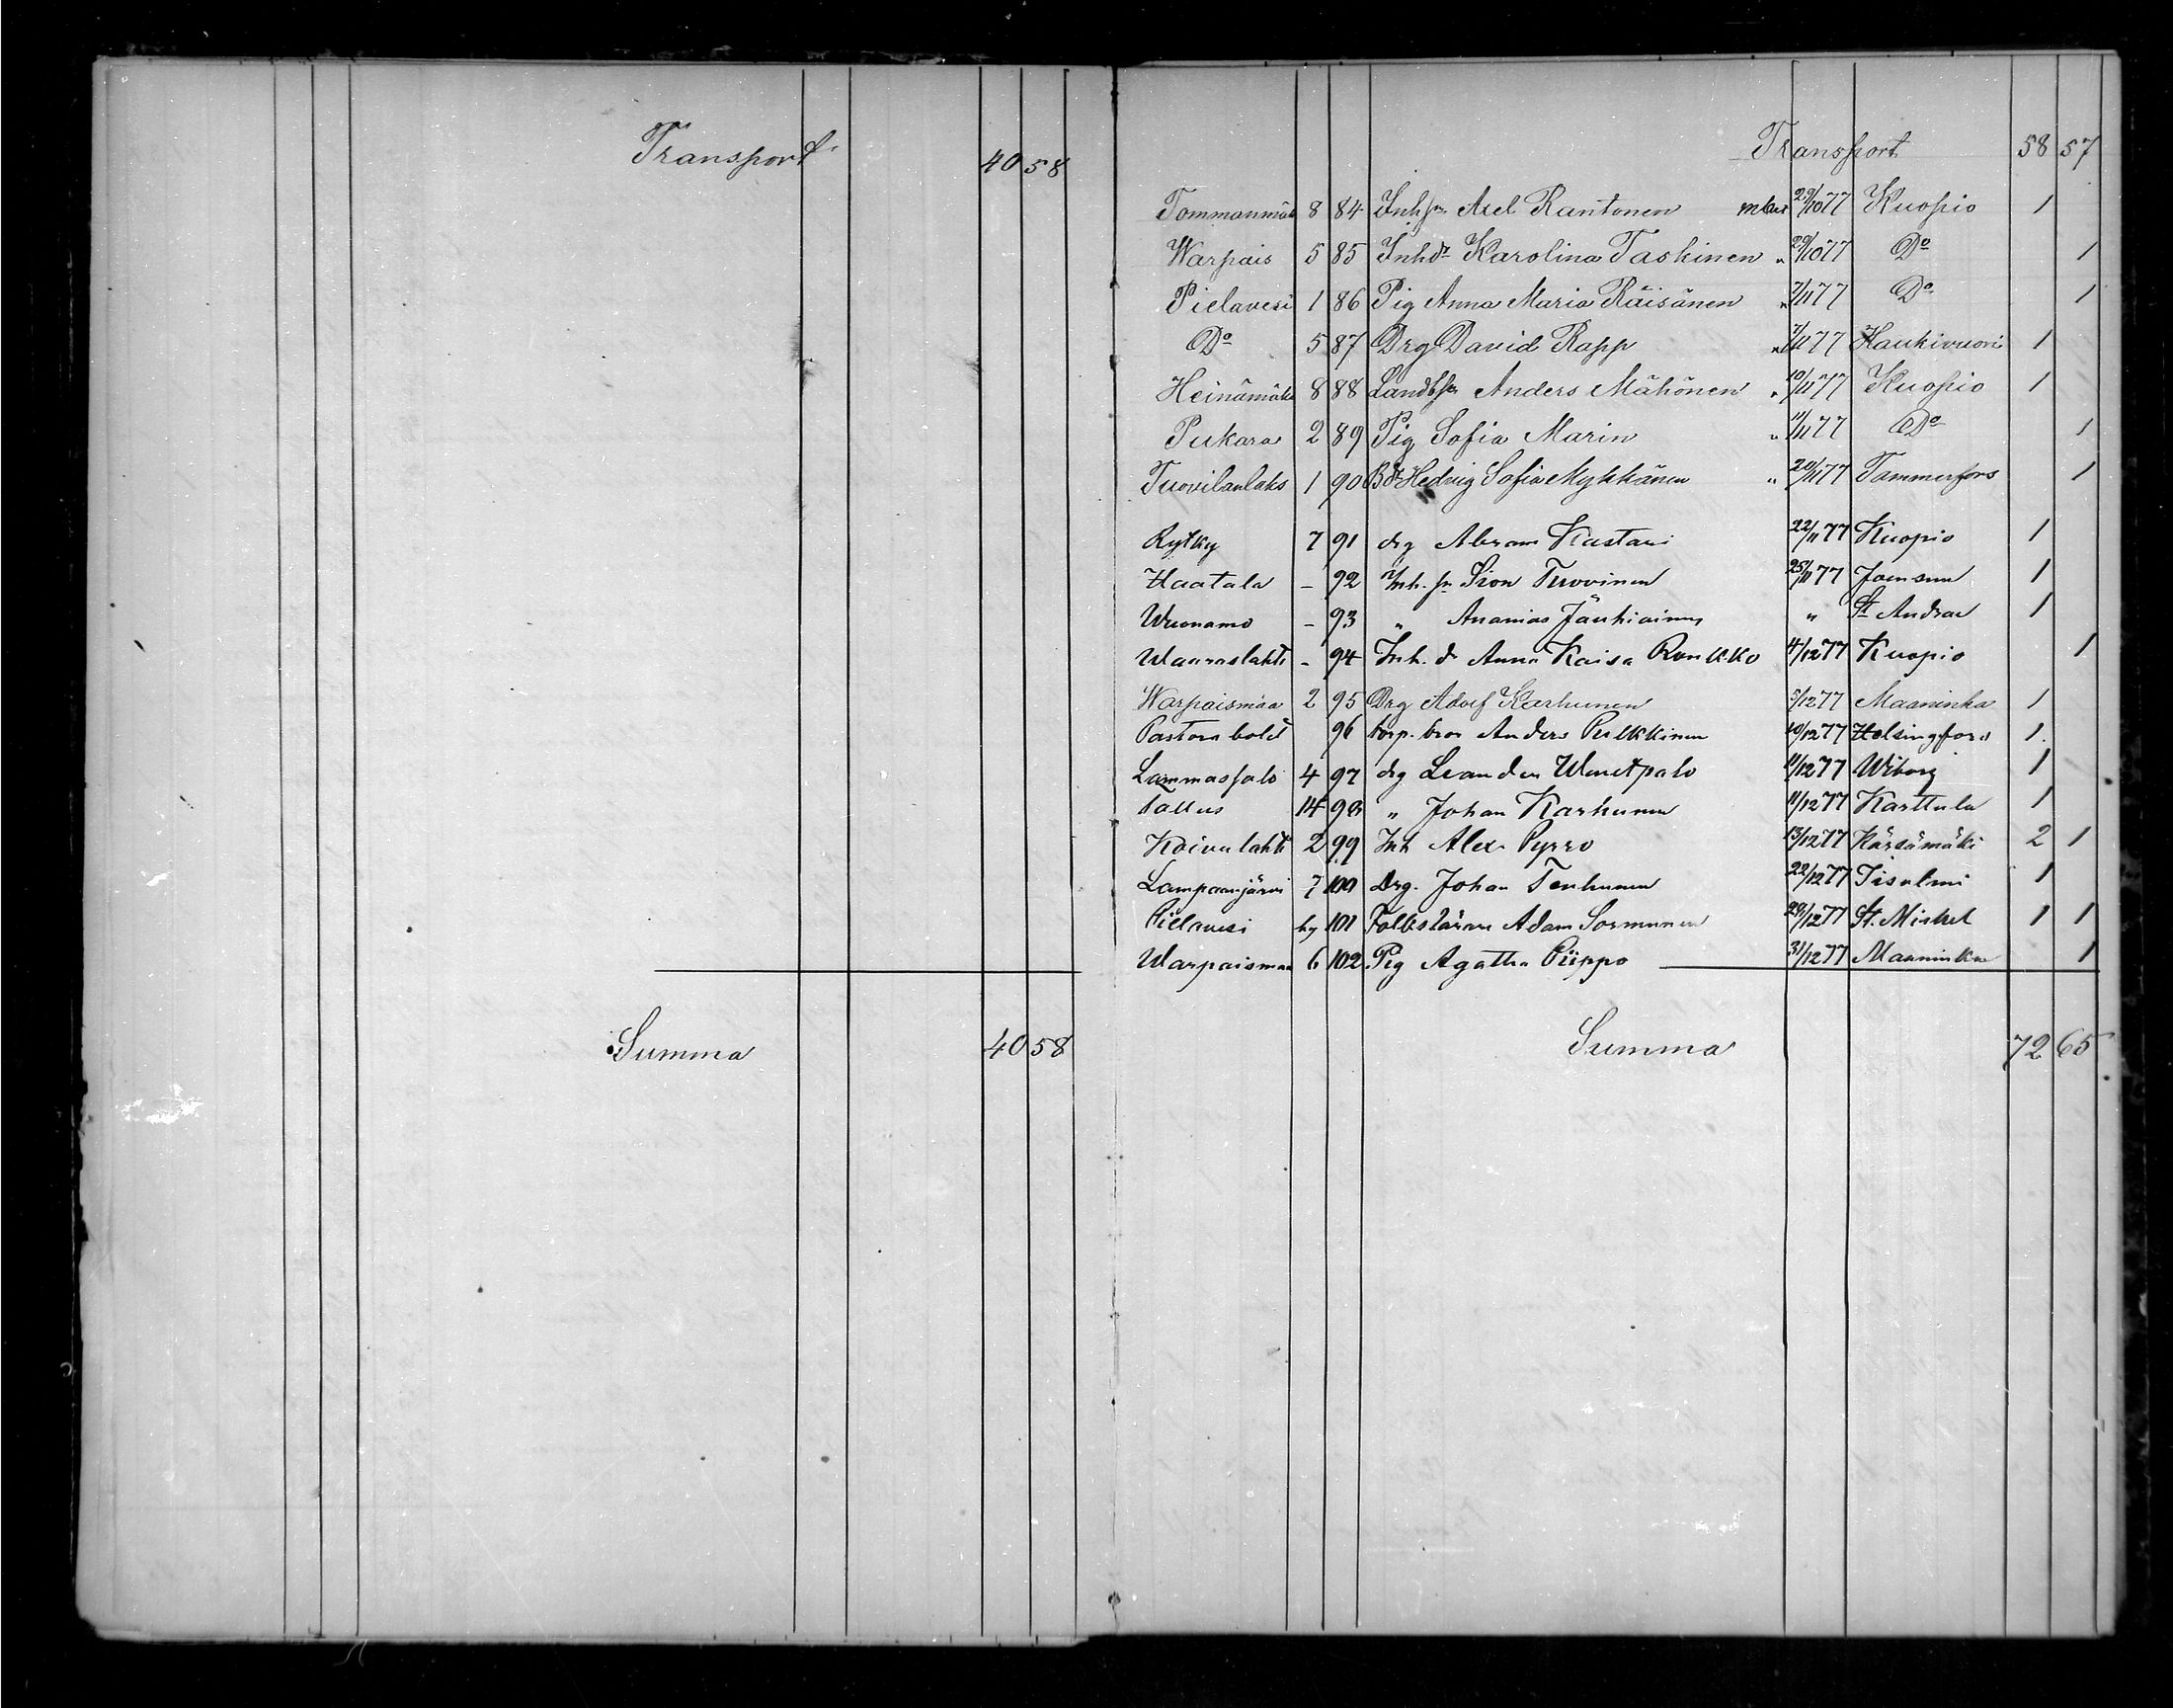 Transport 40 58
Summa 40 58
Transport 58 57
Tommanmäki 8 84 Inhsn Axel Rantonen mbev 29/10 77 Kuopio 1
Warpais 5 85 Inhdr Karolina Taskinen " 29/10 77 Do 1
Pielavesi 1 86 Pig Anna Maria Räisänen " 7/11 77 Do 1
Do 5 87 Drg David Rapp " 7/11 77 Haukivuori 1
Heinämäki 8 88 Landbsn Anders Mähönen " 10/11 77 Kuopio 1
Pukara 2 89 Pig Sofia Marin " 11/11 77 Do 1
Tuovilanlaks 1 90 Bdr Hedvig Sofia Mykkänen " 20/11 77 Tammerfors 1
Rytky 7 91 drg Abram Kustani 22/11 77 Kuopio 1
Haatala – 92 Inh. sn Sion Tirvonen 25/11 77 Joensuu 1
Wuonamo – 93 " Ananias Jäuhiainen " St Andrae 1
Waaraslahti - 94 Inh. dr Anna Kaisa Ronkko 4/12 77 Kuopio 1
Warpaismaa 2 95 Drg Adolf Karhunen 5/12 77 Maaninka 1
Pastorsbolet 96 torp. bror Anders Pulkkinen 10/12 77 Helsingfors 1
Lammassalo 4 97 drg Leander 11/12 77 Wiborg 1
Sallus 14 98 " Johan Karhunen 11/12 77 Karttula 1
Koivulahti 2 99 Inh Alex Pyrro 13/12 77 Kärsämäki 2 1
Lampaanjärvi 7 100 Drg. Johan Tenhunen 22/12 77 Iisalmi 1
Pielavesi by 101 Folkskolärare Adam Sormunen 29/12 77 St. Michel 1 1
Warpaismaa 6 102 Pig Agatha Piippo 31/12 77 Maaninka 1
Summa 72 65